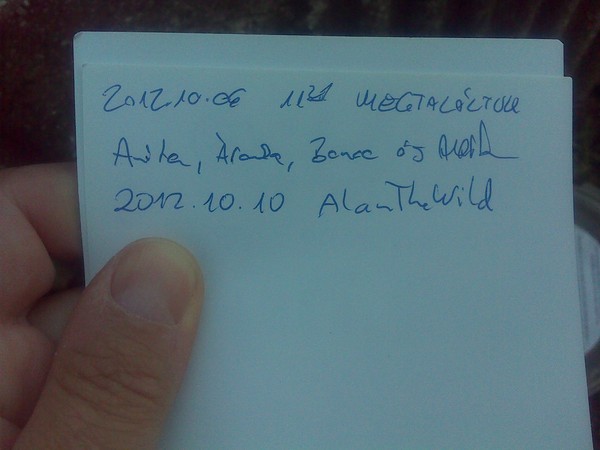 2012.10.06 11²¹ MEGTALÁLTUK
Anita, Aranka, Bence és
2012.10.10 AlanTheWild